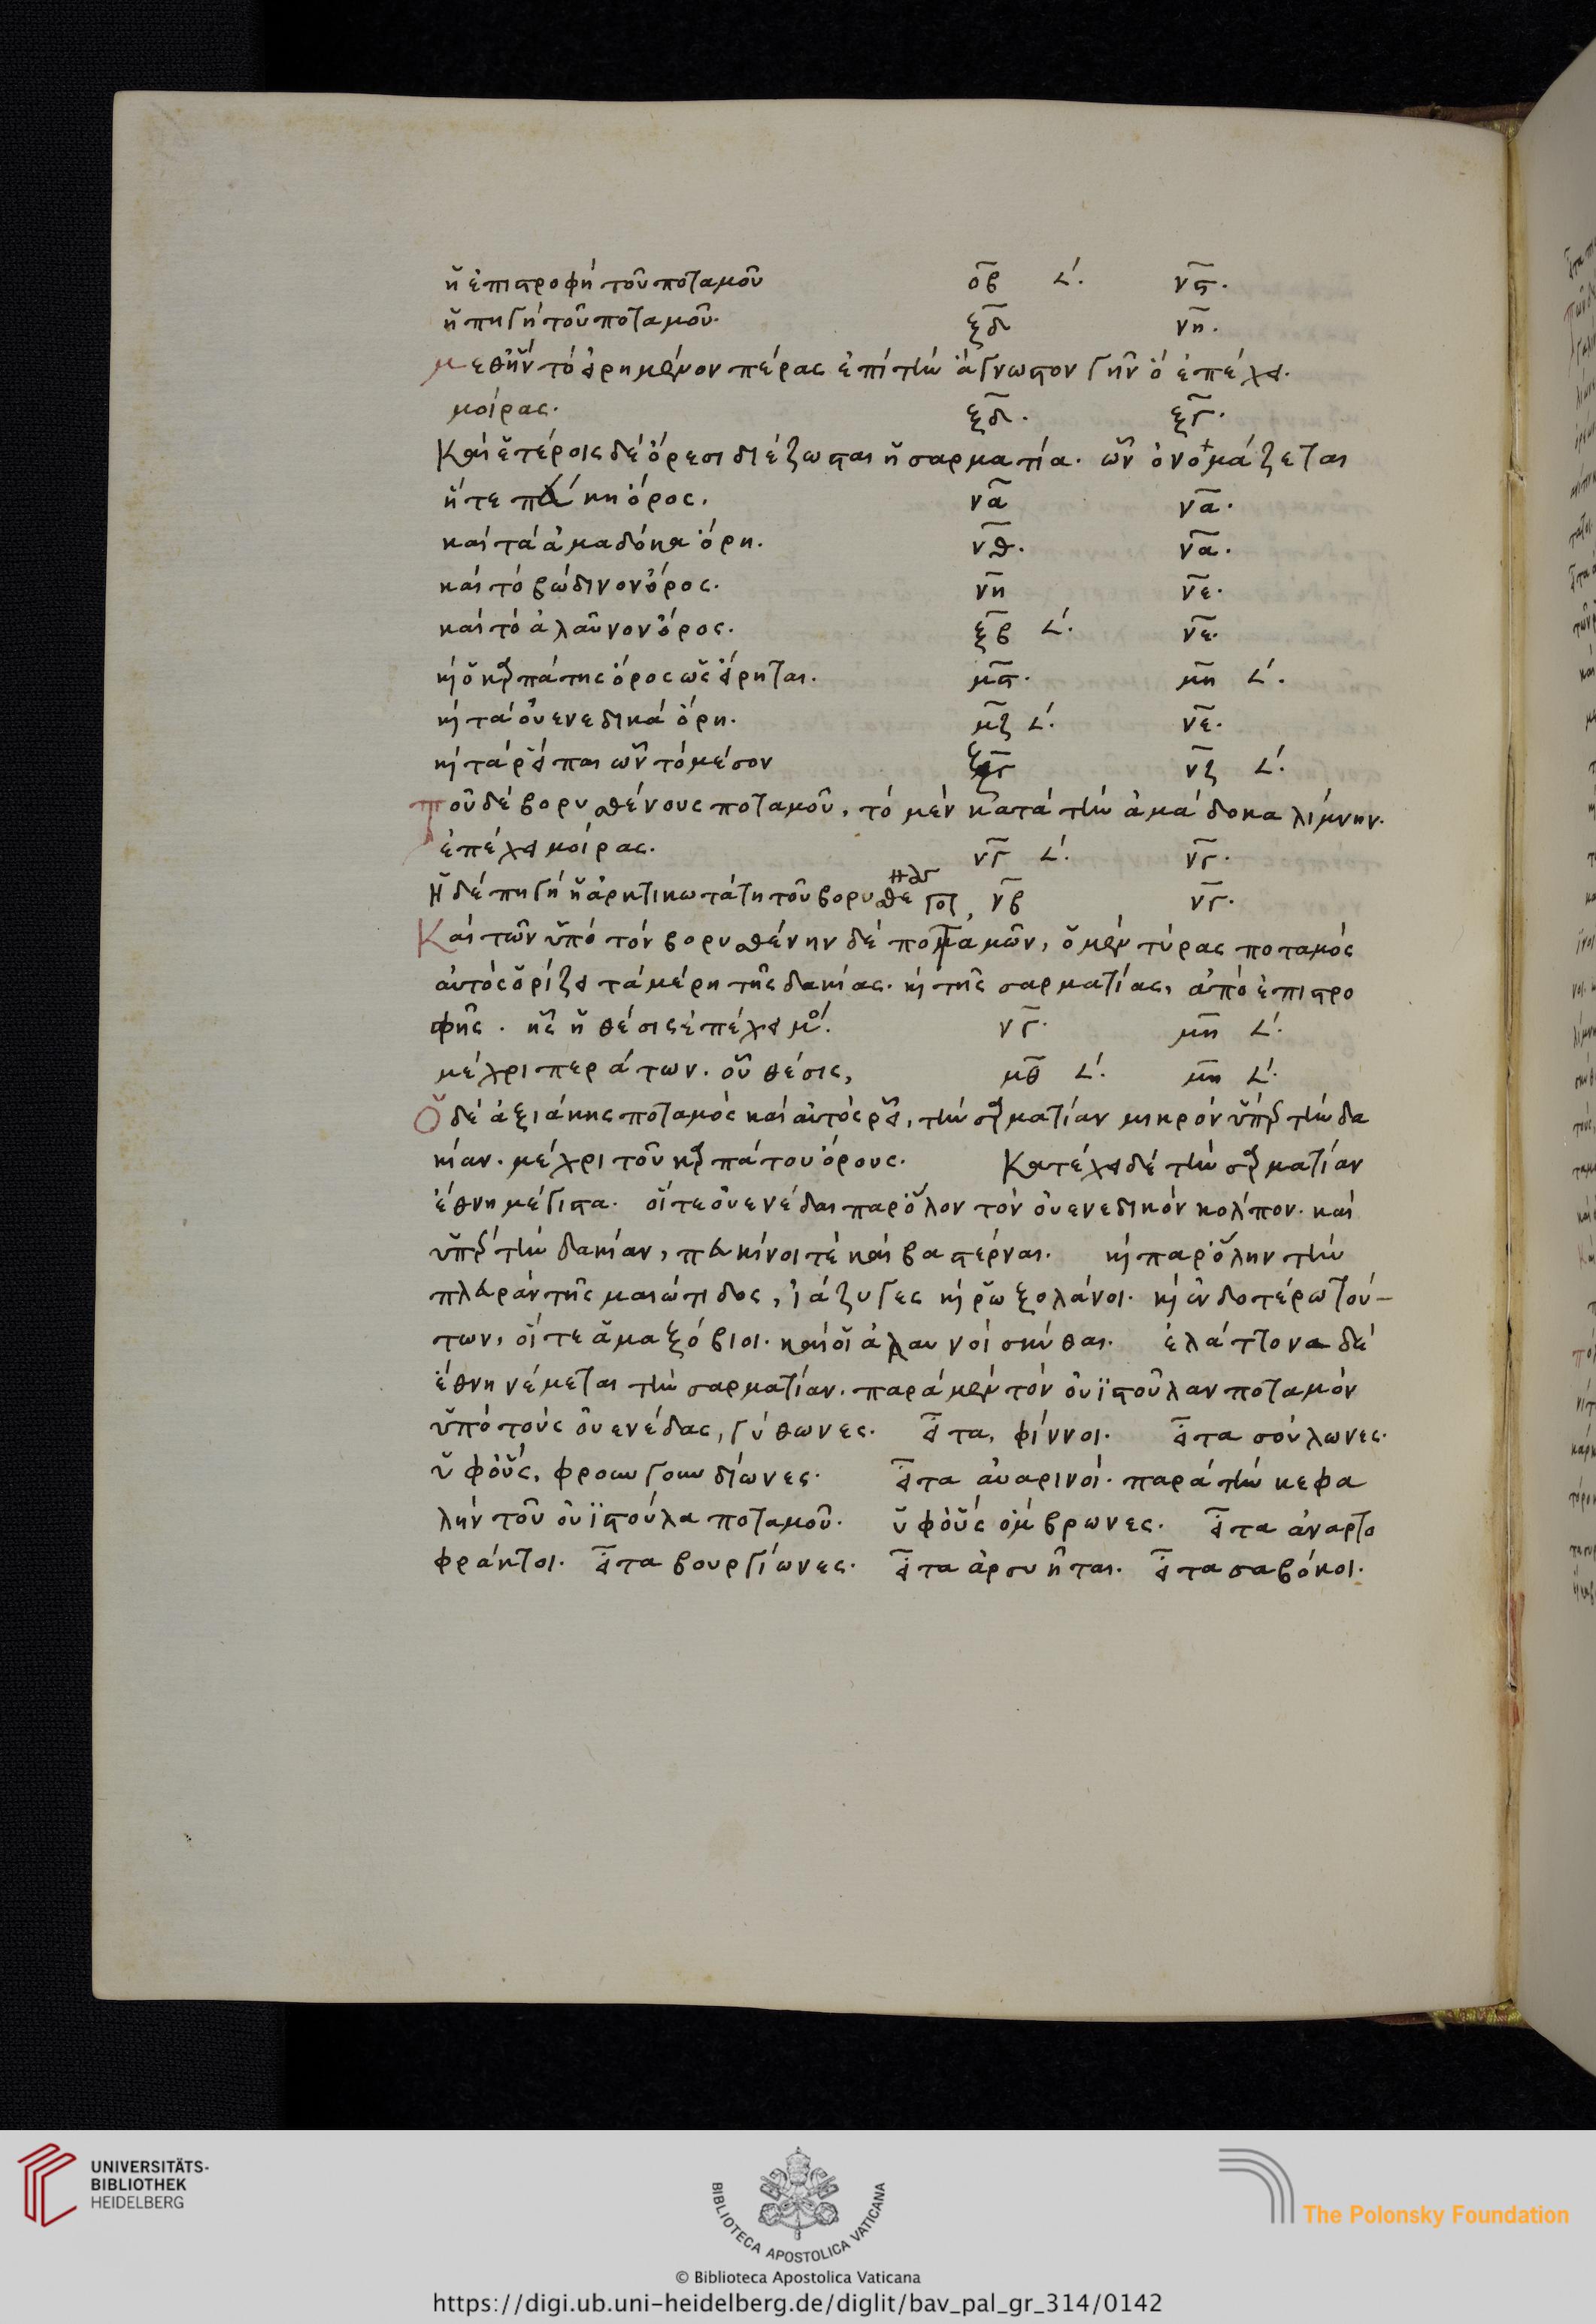 ἡ ἐπιστροφὴ τοῦ ποταμοῦ οβ 𐅵. νϛ.
ἡ πηγὴ τοῦ ποταμοῦ. ξδ νη.
μεθ' ἣν τὸ εἰρημένον πέρας ἐπὶ τὴν ἄγνωστον γῆν ὃ ἐπέχει.
μοίρας. ξδ. ξγ.
Καὶ ἑτέροις δὲ ὄρεσι διέζωσται ἡ σαρματία. ὧν ὀνομάζεται
ἥ τε πεύκη ὄρος. να να.
καὶ τὰ ἀμαδόκα ὄρη. νθ. να.
καὶ τὸ βώδινον ὄρος. νη νε.
καὶ τὸ ἀλαῦνον ὄρος. ξβ 𐅵. νε.
καὶ ὁ καρπάτης ὄρος ὡς εἴρηται. μϛ. μη 𐅵.
καὶ τὰ οὐενεδικὰ ὄρη. μζ 𐅵. νε.
καὶ τὰ ῥίπαι ὧν τὸ μέσον ξγ νζ 𐅵.
Τοῦ δὲ βορυσθένους ποταμοῦ, τὸ μὲν κατὰ τὴν ἀμάδοκα λίμνην.
ἐπέχει μοίρας. νγ 𐅵. νγ.
Ἡ δὲ πηγὴ ἡ ἀρκτικωτάτη τοῦ βορυσθε νβ νγ.
Καὶ τῶν ὑπὸ τὸν βορυσθένην δὲ ποταμῶν, ὁ μὲν τύρας ποταμὸς
αὐτὸς ὁρίζει τὰ μέρη τῆς δακίας. καὶ τῆς σαρματίας, ἀπὸ ἐπιστρο
φῆς. ἧς ἡ θέσις ἐπέχει μοί. νγ. μη 𐅵.
μέχρι περάτων. οὗ θέσις, μθ 𐅵. μη 𐅵.
Ὁ δὲ ἀξιάκης ποταμὸς καὶ αὐτὸς ῥεῖ, τὴν σαρματίαν μικρὸν ὑπὲρ τὴν δα
κίαν. μέχρι τοῦ καρπάτου ὄρους. Κατέχει δὲ τὴν σαρματίαν
ἔθνη μέγιστα. οἵ τε οὐενέδαι παρ' ὅλον τὸν οὐενεδικὸν κόλπον. καὶ
ὑπὲρ τὴν δακίαν, πευκῖνοί τε καὶ βαστέρναι. καὶ παρ' ὅλην τὴν
πλευρὰν τῆς μαιώτιδος, ἰάζυγες καὶ ῥωξολάνοι. καὶ ἐνδοτέρω τού-
των, οἵ τε ἁμαξόβιοι. καὶ οἱ ἀλαυνοὶ σκύθαι. ἐλάττονα δὲ
ἔθνη νέμεται τὴν σαρματίαν. παρὰ μὲν τὸν οὐϊστοῦλαν ποταμὸν
ὑπὸ τοὺς οὐενέδας, γύθωνες. εἶτα, φίννοι. εἶτα σούλωνες.
ὑφ' οὓς, φρουγουνδίωνες. εἶτα αὐαρινοί. παρὰ τὴν κεφα
λὴν τοῦ οὐϊστούλα ποταμοῦ. ὑφ' οὓς ὄμβρωνες. εἶτα ἀναρτο
φράκτοι. εἶτα βουργίωνες. εἶτα ἀρσυῆται. εἶτα σαβόκοι.
UNIVERSITÄTS-
BIBLIOTHEK
HEIDELBERG
BIBLIOTECA APOSTOLICA VATICANA
The Polonsky Foundation
© Biblioteca Apostolica Vaticana
https://digi.ub.uni-heidelberg.de/diglit/bav_pal_gr_314/0142